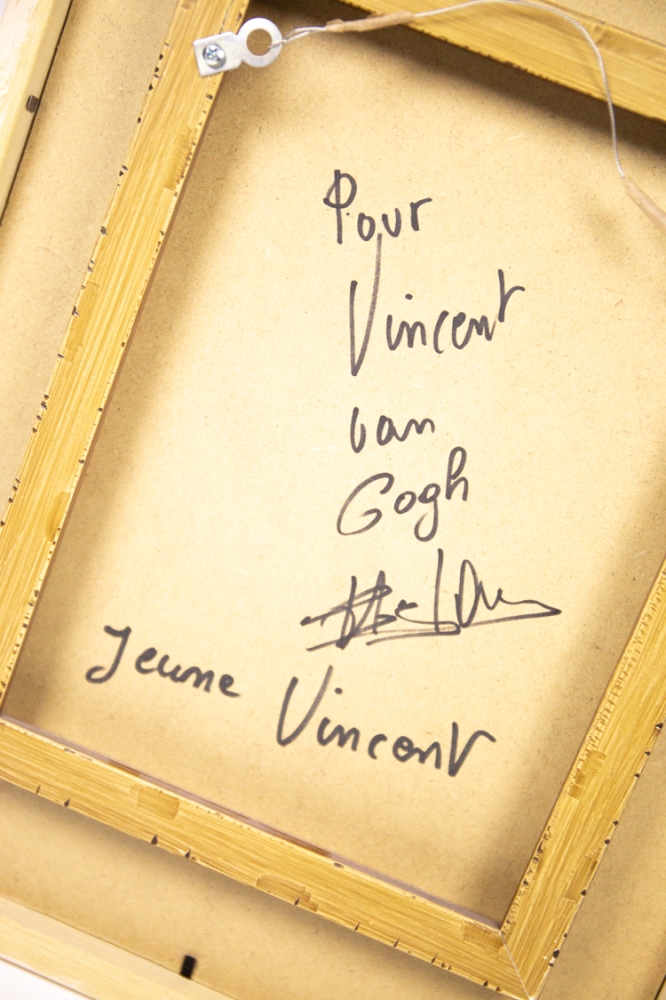 Pour
Vincent
van
Gogh
Jeune Vincent